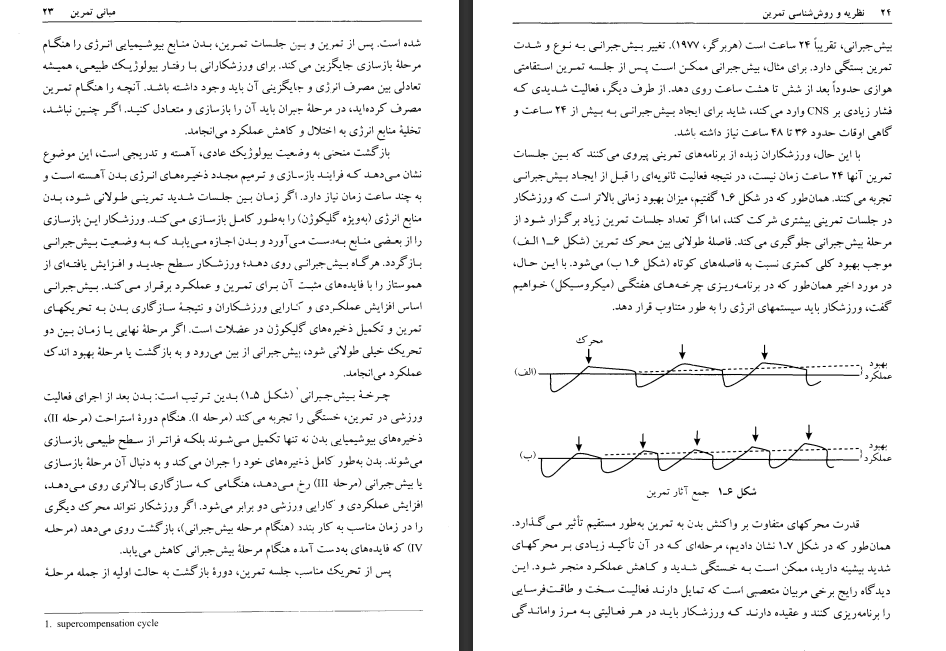 مبانی تمرین ۲۳
شده است. پس از تمرین و بین جلسات تمرین، بدن منابع بیوشیمیایی انرژی را هنگام
مرحلهٔ بازسازی جایگزین می‌کند. برای ورزشکارانی با رفتار بیولوژیک طبیعی، همیشه
تعادلی بین مصرف انرژی و جایگزینی آن باید وجود داشته باشد. آنچه را هنگام تمرین
مصرف کرده‌اید، در مرحلهٔ جبران باید آن را بازسازی و متعادل کنید. اگر چنین نباشد،
تخلیهٔ منابع انرژی به اختلال و کاهش عملکرد می‌انجامد.
بازگشت منحنی به وضعیت بیولوژیک عادی، آهسته و تدریجی است، این موضوع
نشان می‌دهد که فرایند بازسازی و ترمیم مجدد ذخیره‌های انرژی بدن آهسته است و
به چند ساعت زمان نیاز دارد. اگر زمان بین جلسات شدید تمرینی طولانی شود، بدن
منابع انرژی (به‌ویژه گلیکوژن) را به‌طور کامل بازسازی می‌کند. ورزشکار این بازسازی
را از بعضی منابع به‌دست می‌آورد و بدن اجازه می‌یابد که به وضعیت بیش‌جبرانی
بازگردد. هرگاه بیش‌جبرانی روی دهد؛ ورزشکار سطح جدید و افزایش یافته‌ای از
هموستاز را با فایده‌های مثبت آن برای تمرین و عملکرد برقرار می‌کند. بیش‌جبرانی
اساس افزایش عملکردی و کارایی ورزشکاران و نتیجهٔ سازگاری بدن به تحریکهای
تمرین و تکمیل ذخیره‌های گلیکوژن در عضلات است. اگر مرحلهٔ نهایی یا زمان بین دو
تحریک خیلی طولانی شود، بیش‌جبرانی از بین می‌رود و به بازگشت یا مرحلهٔ بهبود اندک
عملکرد می‌انجامد.
چرخهٔ بیش‌جبرانی۱ (شکل ۵ـ۱) بدین ترتیب است: بدن بعد از اجرای فعالیت
ورزشی در تمرین، خستگی را تجربه می‌کند (مرحله I). هنگام دورهٔ استراحت (مرحله II)،
ذخیره‌های بیوشیمیایی بدن نه تنها تکمیل می‌شوند بلکه فراتر از سطح طبیعی بازسازی
می‌شوند. بدن به‌طور کامل ذخیره‌های خود را جبران می‌کند و به دنبال آن مرحلهٔ بازسازی
یا بیش‌جبرانی (مرحله III) رخ می‌دهد، هنگامی که سازگاری بالاتری روی می‌دهد،
افزایش عملکردی و کارایی ورزشی دو برابر می‌شود. اگر ورزشکار نتواند محرک دیگری
را در زمان مناسب به کار بندد (هنگام مرحله بیش‌جبرانی)، بازگشت روی می‌دهد (مرحلهٔ
IV) که فایده‌های به‌دست آمده هنگام مرحلهٔ بیش‌جبرانی کاهش می‌یابد.
پس از تحریک مناسب جلسه تمرین، دورهٔ بازگشت به حالت اولیه از جمله مرحلهٔ
1. supercompensation cycle
۲۴ نظریه و روش‌شناسی تمرین
بیش‌جبرانی، تقریباً ۲۴ ساعت است (هربرگر، ۱۹۷۷). تغییر بیش‌جبرانی به نوع و شدت
تمرین بستگی دارد. برای مثال، بیش‌جبرانی ممکن است پس از جلسه تمرین استقامتی
هوازی حدوداً بعد از شش تا هشت ساعت روی دهد. از طرف دیگر، فعالیت شدیدی که
فشار زیادی بر CNS وارد می‌کند، شاید برای ایجاد بیش‌جبرانی به بیش از ۲۴ ساعت و
گاهی اوقات حدود ۳۶ تا ۴۸ ساعت نیاز داشته باشد.
با این حال، ورزشکاران زبده از برنامه‌های تمرینی پیروی می‌کنند که بین جلسات
تمرین آنها ۲۴ ساعت زمان نیست، در نتیجه فعالیت ثانویه‌ای را قبل از ایجاد بیش‌جبرانی
تجربه می‌کنند. همان‌طور که در شکل ۶ـ۱ گفتیم، میزان بهبود زمانی بالاتر است که ورزشکار
در جلسات تمرینی بیشتری شرکت کند، اما اگر تعداد جلسات تمرین زیاد برگزار شود از
مرحلهٔ بیش‌جبرانی جلوگیری می‌کند. فاصلهٔ طولانی بین محرک تمرین (شکل ۶ـ۱ الف)
موجب بهبود کلی کمتری نسبت به فاصله‌های کوتاه (شکل ۶ـ۱ ب) می‌شود. با این حال،
در مورد اخیر همان‌طور که در برنامه‌ریزی چرخه‌های هفتگی (میکروسیکل) خواهیم
گفت، ورزشکار باید سیستمهای انرژی را به طور متناوب قرار دهد.
محرک
بهبود
عملکرد
(الف)
بهبود
عملکرد
(ب)
شکل ۶ـ۱ جمع آثار تمرین
قدرت محرکهای متفاوت بر واکنش بدن به تمرین به‌طور مستقیم تأثیر می‌گذارد.
همان‌طور که در شکل ۷ـ۱ نشان دادیم، مرحله‌ای که در آن تأکید زیادی بر محرکهای
شدید بیشینه دارید، ممکن است به خستگی شدید و کاهش عملکرد منجر شود. این
دیدگاه رایج برخی مربیان متعصبی است که تمایل دارند فعالیت سخت و طاقت‌فرسایی
را برنامه‌ریزی کنند و عقیده دارند که ورزشکار باید در هر فعالیتی به مرز واماندگی